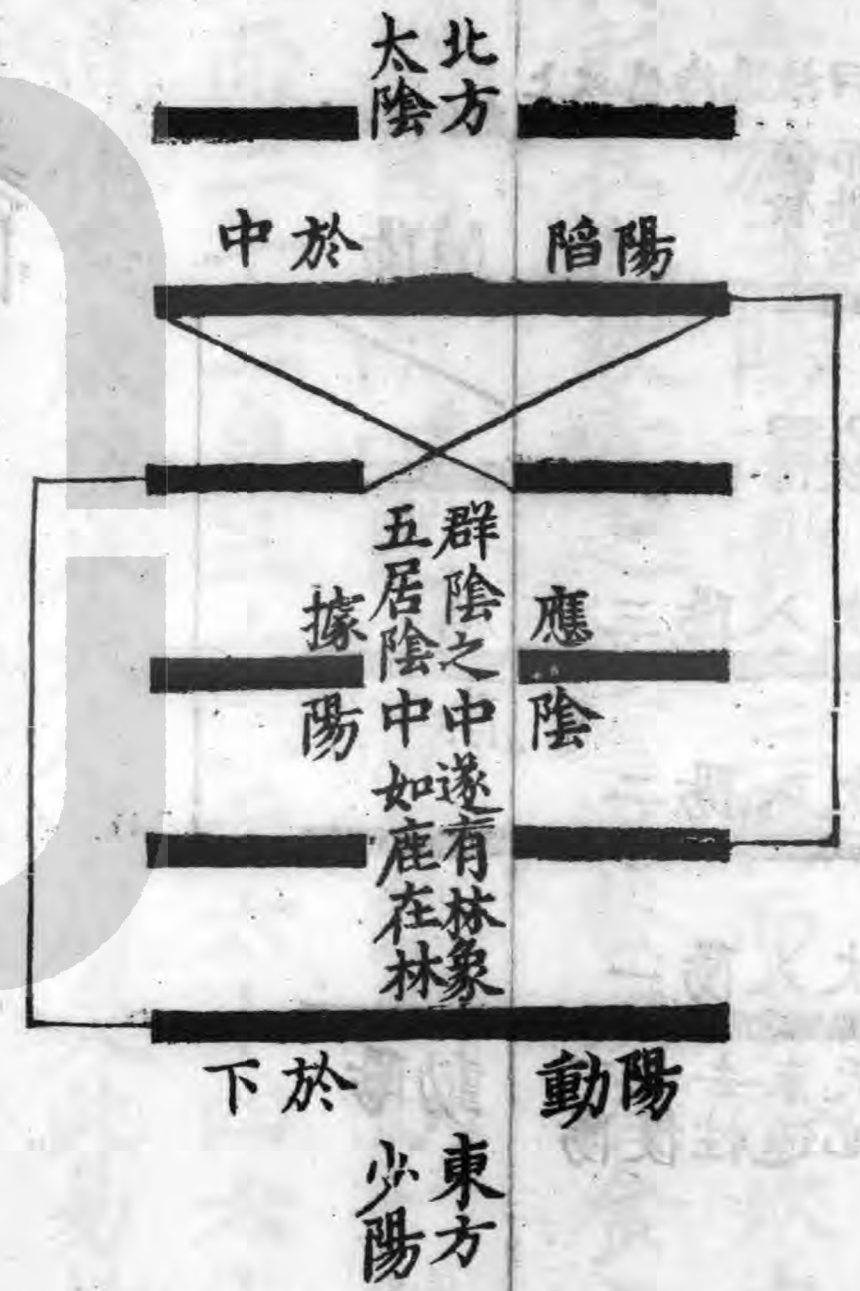 北方
太陰
陽陷於中
應陰
群陰之中遂有林象
五居陰中如鹿在林
據陽
陽動於下
東方
少陽